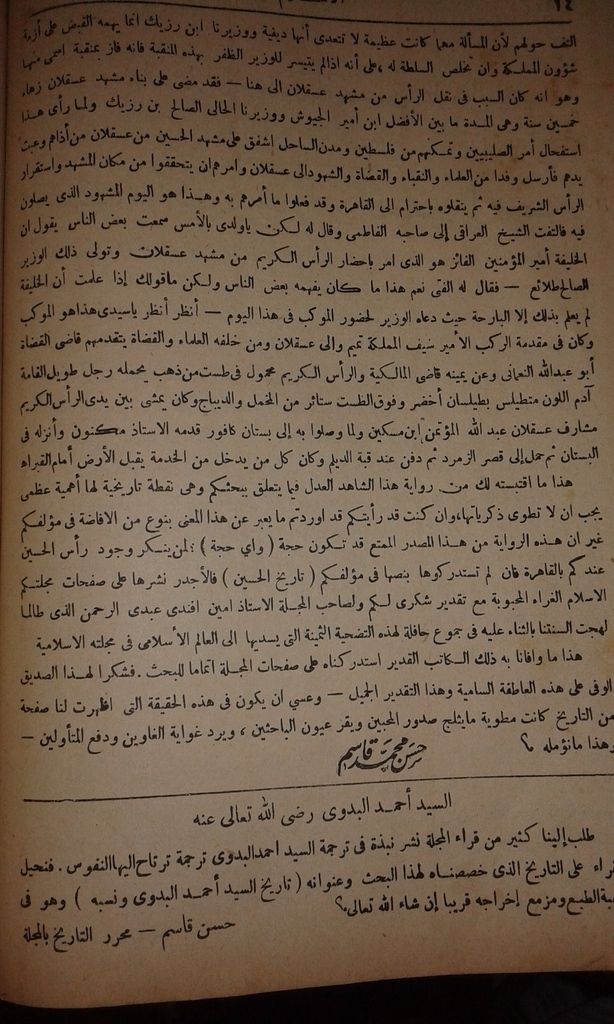 ١٤
التف حولهم لأن المسألة مهما كانت عظيمة لا تتعدى أنها دينية ووزيرنا ابن رزيك انما يهمه القبض على أزمة
شؤون المملكة وان تخلص السلطة له ، على أنه اذا لم يتيسر للوزير الظفر بهذه المنقبة فانه فاز بمنقبة اسمى منها
وهو انه كان السبب فى نقل الرأس من مشهد عسقلان الى هنا — فقد مضى على بناء مشهد عسقلان زهاء
خمسين سنة وهى المدة ما بين الأفضل ابن أمير الجيوش ووزيرنا الحالى الصالح بن رزيك ولما رأى هذا
استفحال أمر الصليبيين وتمكنهم من فلسطين ومدن الساحل إشفق على مشهد الحسين من عسقلان من أذاهم وعبث
يدهم فأرسل وفدا من العلماء والنقباء والقضاة والشهود الى عسقلان وامرهم ان يتحققوا من مكان المشهد واستقرار
الرأس الشريف فيه ثم ينقلوه باحترام الى القاهرة وقد فعلوا ما أمرهم به وهذا هو اليوم المشهود الذى يصلون
فيه فالتفت الشيخ العراقى إلى صاحبه الفاطمى وقال له لكن ياولدى بالأمس سمعت بعض الناس يقول ان
الخليفة أمير المؤمنين الفائز هو الذى امر باحضار الرأس الكريم من مشهد عسقلان وتولى ذلك الوزير
الصالح طلائع — فقال له الفتى نعم هذا ما كان يفهمه بعض الناس ولكن ماقولك إذا علمت أن الخليفة
لم يعلم بذلك إلا البارحة حيث دعاه الوزير لحضور الموكب فى هذا اليوم — أنظر أنظر ياسيدى هذا هو الموكب
وكان فى مقدمة الركب الأمير سيف المملكة تميم والى عسقلان ومن خلفه العلماء والقضاة يتقدمهم قاضى القضاة
أبو عبدالله النعمانى وعن يمينه قاضى المالكية والرأس الكريم محمول فى طست من ذهب يحمله رجل طويل القامة
آدم اللون متطيلس بطيلسان أخضر وفوق الطست ستائر من المخمل والديباج وكان يمشى بين يدى الرأس الكريم
مشارف عسقلان عبد الله المؤتمن ابن مسكين ولما وصلوا به إلى بستان كافور قدمه الاستاذ مكنون وأنزله فى
البستان ثم حمل إلى قصر الزمرد ثم دفن عند قبة الديلم وكان كل من يدخل من الخدمة يقبل الأرض أمام القبر اه
هذا ما اقتبسته لك من رواية هذا الشاهد العدل فيما يتعلق ببحثكم وهى نقطة تاريخية لها أهمية عظمى
يجب ان لا تطوى ذكرياتها، وان كنت قد رأيتكم قد اوردتم ما يعبر عن هذا المعنى بنوع من الافاضة فى مؤلفكم
غير ان هذه الرواية من هذا المصدر الممتع قد تكون حجة ( واي حجة ) : لمن ينكر وجود رأس الحسين
عندكم بالقاهرة فان لم تستدركوها بنصها فى مؤلفكم ( تاريخ الحسين ) فالأجدر نشرها على صفحات مجلتكم
الاسلام الغراء المحبوبة مع تقدير شكرى لكم ولصاحب المجلة الاستاذ امين افندى عبدى الرحمن الذى طالما
لهجت السنتنا بالثناء عليه فى جموع حافلة لهذه التضحية الثمينة التى يسديها الى العالم الأسلامى فى مجلته الاسلامية
هذا ما وافانا به ذلك الكاتب القدير استدركناه على صفحات المجلة اتماما للبحث . فشكرا لهذا الصديق
الوفى على هذه العاطفة السامية وهذا التقدير الجميل — وعسي ان يكون فى هذه الحقيقة التى اظهرت لنا صفحة
من التاريخ كانت مطوية مايثلج صدور المحبين ويقر عيون الباحثين ، ويرد غواية الغاوين ودفع المتأولين —
وهذا مانؤمله ؟
حسن محمد قاسم
السيد أحمد البدوى رضى الله تعالى عنه
طلب إلينا كثير من قراء المجلة نشر نبذة فى ترجمة السيد احمد البدوى ترجمة ترتاح اليها النفوس . فنحيل
القراء على التاريخ الذى خصصناه لهذا البحث وعنوانه ( تاريخ السيد أحمد البدوى ونسبه ) وهو فى
الطبع ومزمع إخراجه قريبا إن شاء الله تعالى؟
حسن قاسم — محرر التاريخ بالمجلة